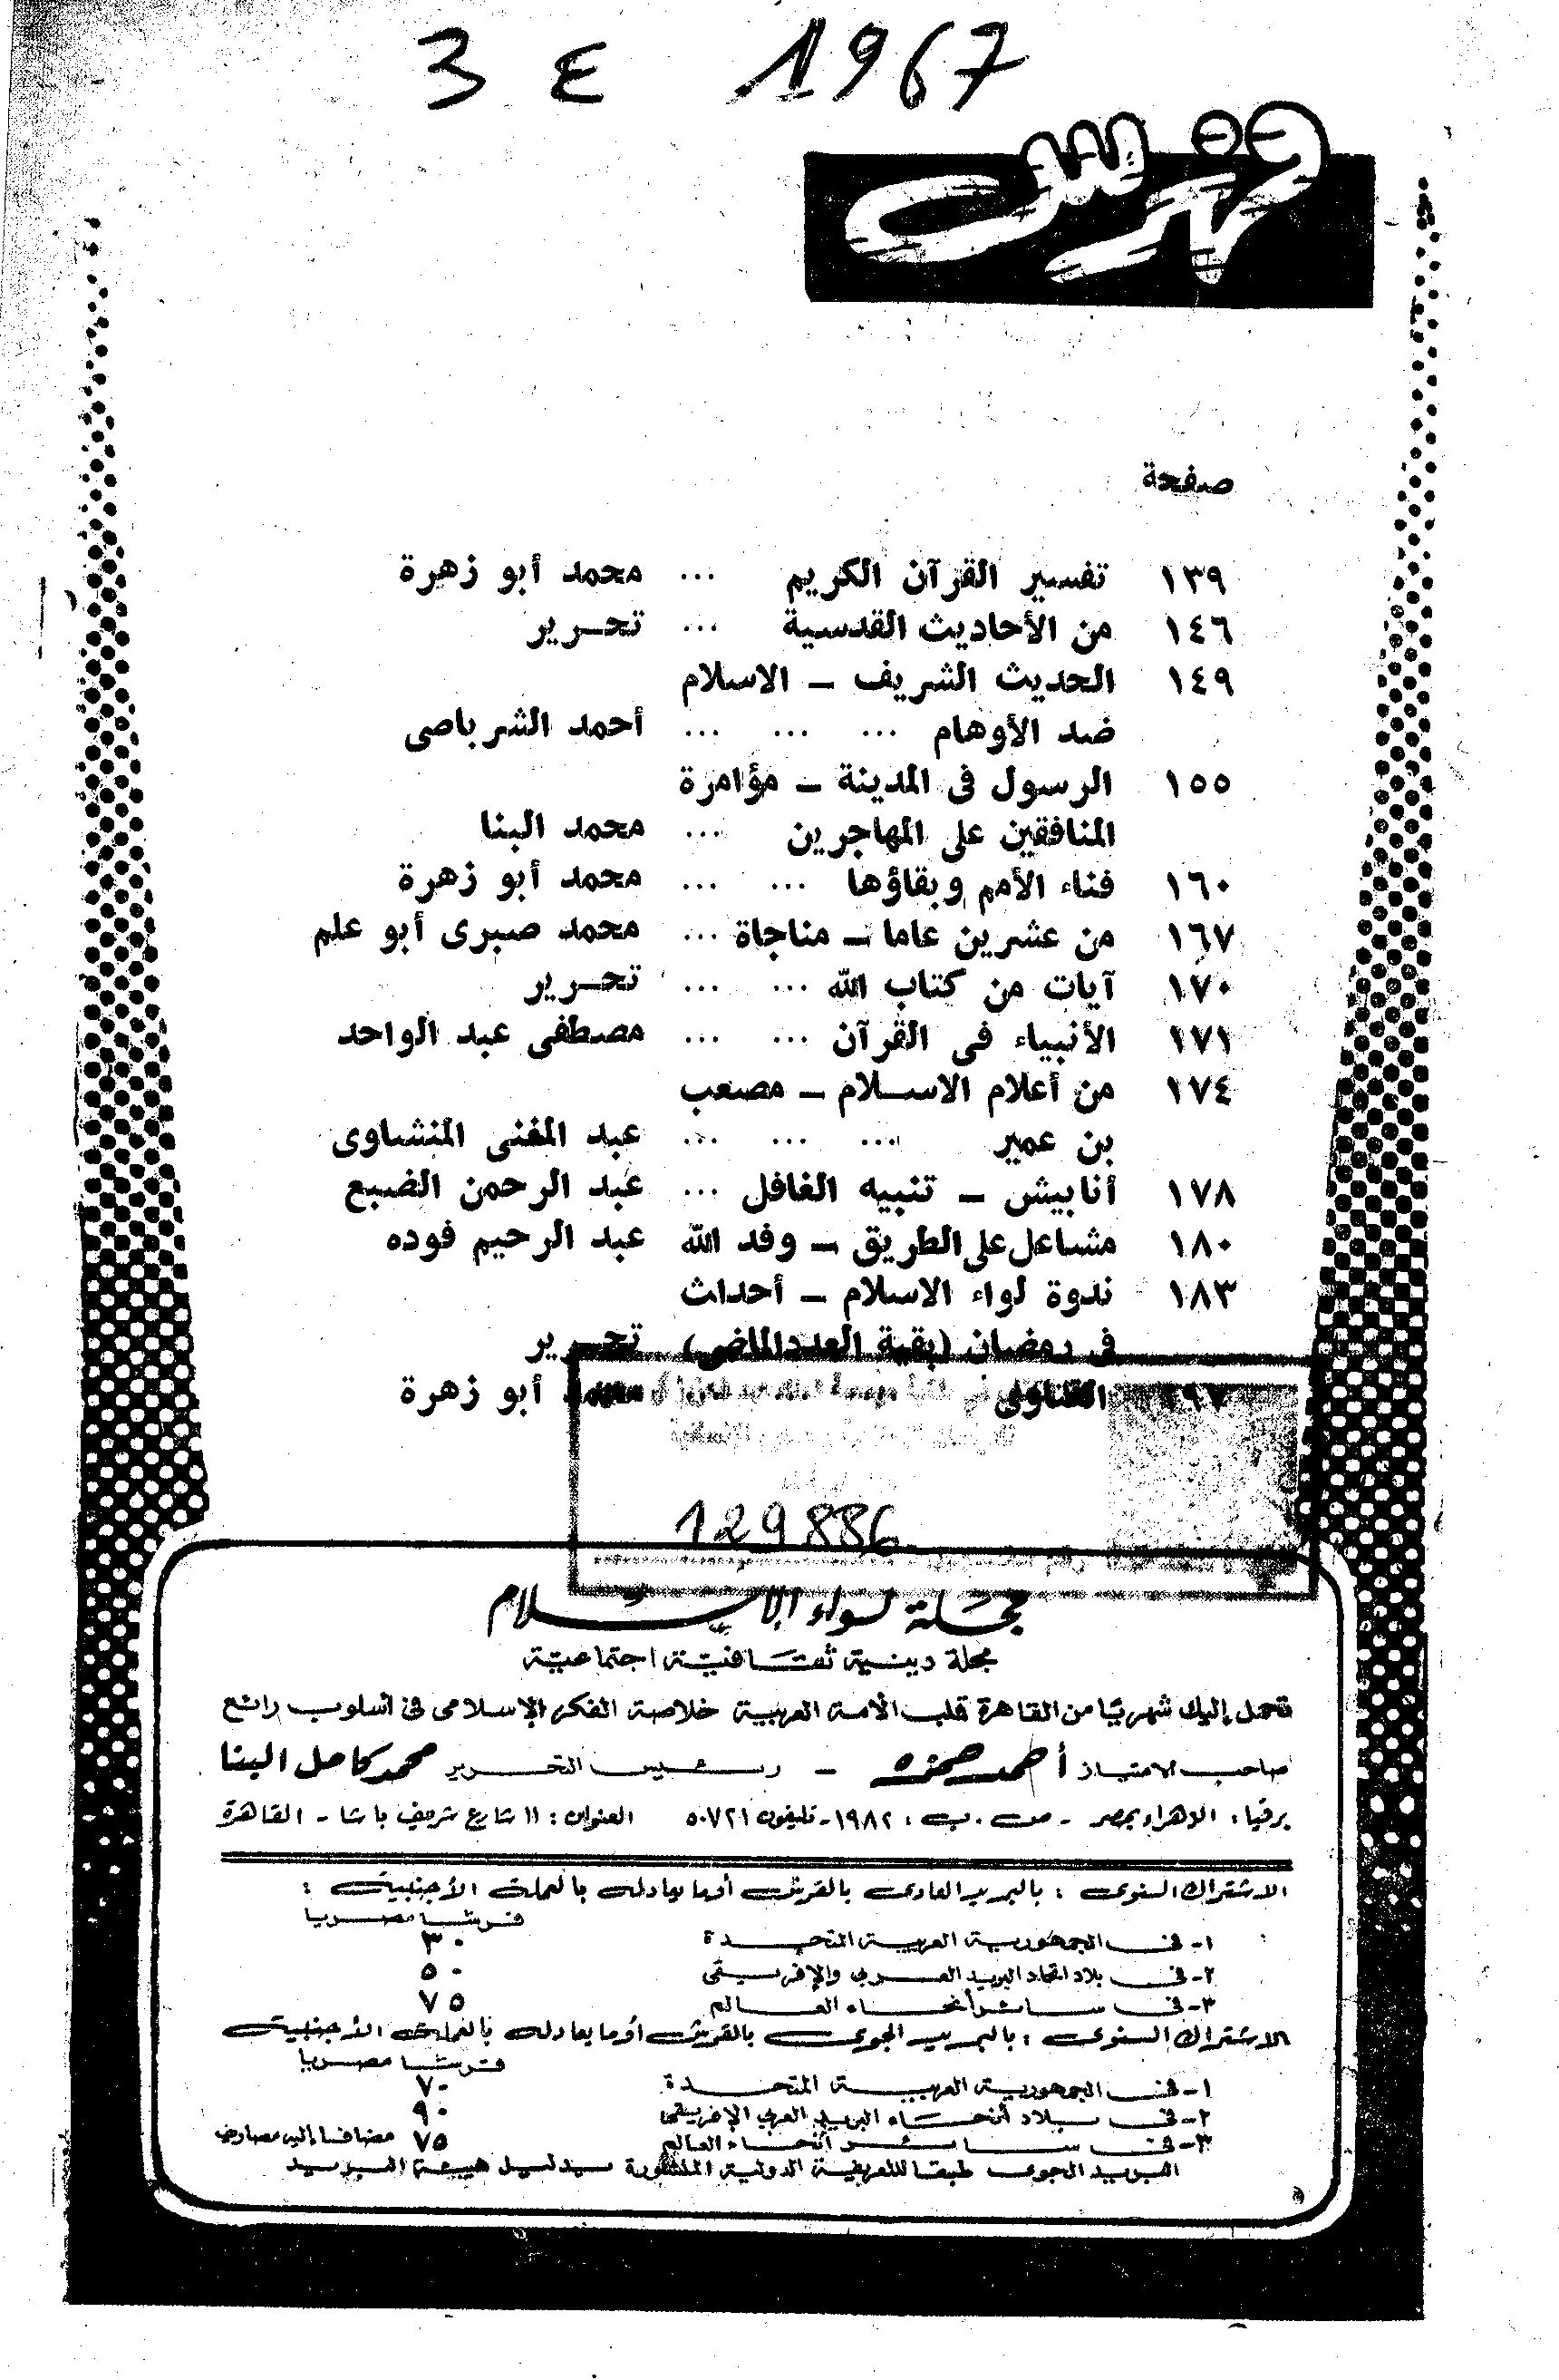 3 ع 1967
فهرس
صفحة
١٣٩ تفسير القرآن الكريم ... محمد أبو زهرة
١٤٦ من الأحاديث القدسية ... تحـرير
١٤٩ الحديث الشريف – الاسلام
ضد الأوهام ... ... ... أحمد الشرباصى
١٥٥ الرسول فى المدينة – مؤامرة
المنافقين على المهاجرين ... محمد البنا
١٦٠ فناء الأمم وبقاؤها ... ... محمد أبو زهرة
١٦٧ من عشرين عاما – مناجاة ... محمد صبرى أبو علم
١٧٠ آيات من كتاب الله ... ... تحـرير
١٧١ الأنبياء فى القرآن ... ... مصطفى عبد الواحد
١٧٤ من أعلام الاسـلام – مصعب
بن عمير ... ... ... عبد المغنى المنشاوى
١٧٨ أنابيش – تنبيه الغافل ... عبد الرحمن الضبع
١٨٠ مشاعل على الطريق – وفد الله عبد الرحيم فوده
١٨٣ ندوة لواء الاسلام – أحداث
فى رمضان (بقية العدد الماضى) تحـرير
١٩٧ الفتاوى محمد أبو زهرة
129886
مجلة لواء الإسلام
مجلة دينية ثقافية اجتماعية
تحمل إليك شهريًا من القاهرة قلب الأمة العربية خلاصة الفكر الإسلامى فى أسلوب رائع
صاحب الامتياز أحمد حمزه – رئيس التحرير محمد كامل البنا
برقيا: الزهراء بمصر - ص . ب : ١٩٨٢ - تليفون ٥٠٧٢١ العنوان : ١١ شارع شريف باشا - القاهرة
الاشتراك السنوى : بالبريد العادى بالقرش أو ما يعادله بالعملة الأجنبية :
قرشا مصريا
١- فى الجمهورية العربية المتحدة ٣٠
٢- فى بلاد اتحاد البريد العربى والإفريقى ٥٠
٣- فى سائر أنحاء العالم ٧٥
الاشتراك السنوى : بالبريد الجوى بالقرش أو ما يعادله بالعملة الأجنبية
قرشا مصريا
١- فى الجمهورية العربية المتحدة ٧٠
٢- فى بلاد أنحاء البريد العربى الإفريقى ٩٠
٣- فى سائر أنحاء العالم ٧٥ مضافا إليه مصاريف
البريد الجوى طبقا للتعريفة الدولية المنشورة بدليل هيئة البريد